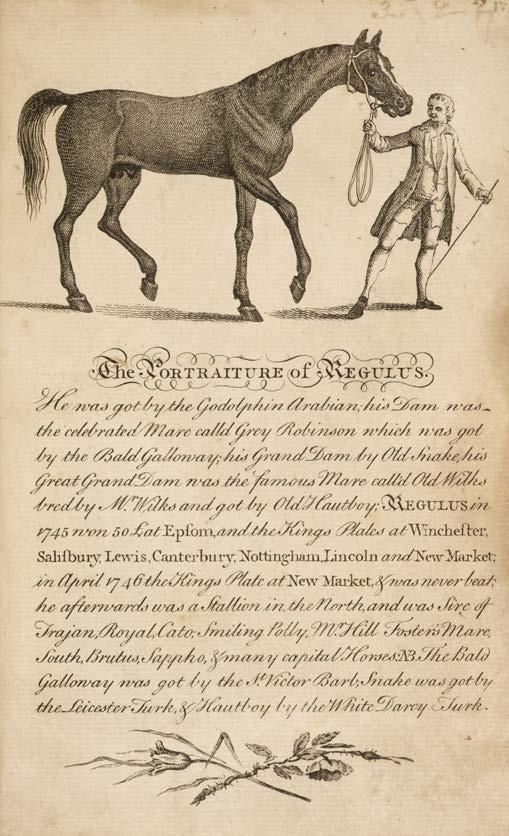 The PORTRAITURE of REGULUS.
He was got by the Godolphin Arabian; his Dam was
the celebrated Mare call'd Grey Robinson which was got
by the Bald Galloway; his Grand Dam by Old Snake, his
Great Grand Dam was the famous Mare call'd Old Wilks
bred by Mr. Wilks and got by Old Hautboy; REGULUS in
1745 won 50 £ at Epſom, and the Kings Plates at Wincheſter,
Saliſbury, Lewis, Canterbury, Nottingham, Lincoln and New Market;
in April 1746 the Kings Plate at New Market, & was never beat;
he afterwards was a Stallion in the North, and was Sire of
Trajan, Royal, Cato, Smiling Polly, Mr. Hill Foster's Mare,
South, Brutus, Sappho, & many capital Horses; NB. The Bald
Galloway was got by the St. Victor Barb; Snake was got by
the Leicester Turk, & Hautboy by the White Darcy Turk.